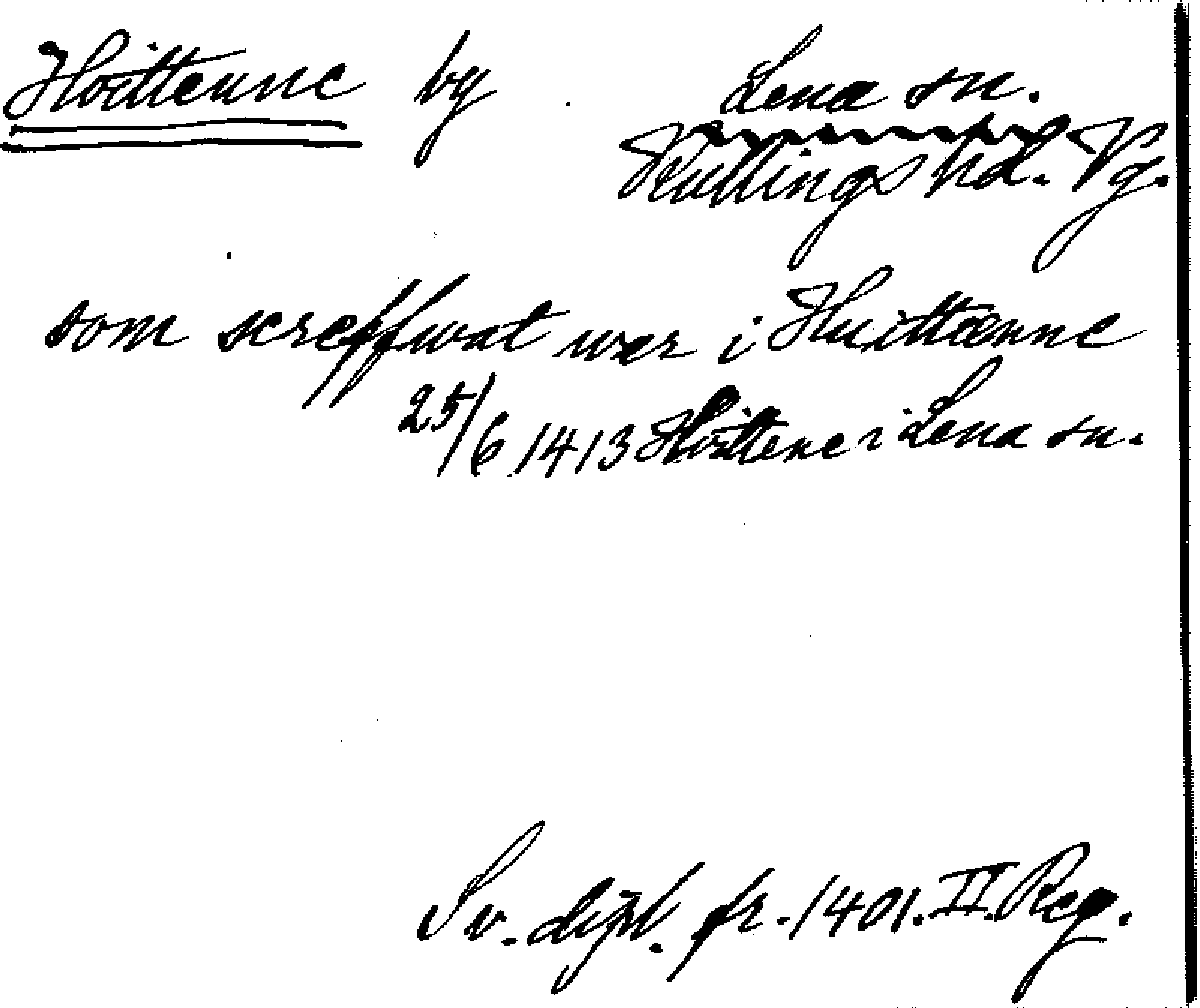 Hvittenne by Lena sn.
Kullings hd. Vg.
som screffwat war i Huittænne
25/6 1413 Hvittene i Lena sn.
Sv. dipl. fr. 1401. II. Reg.